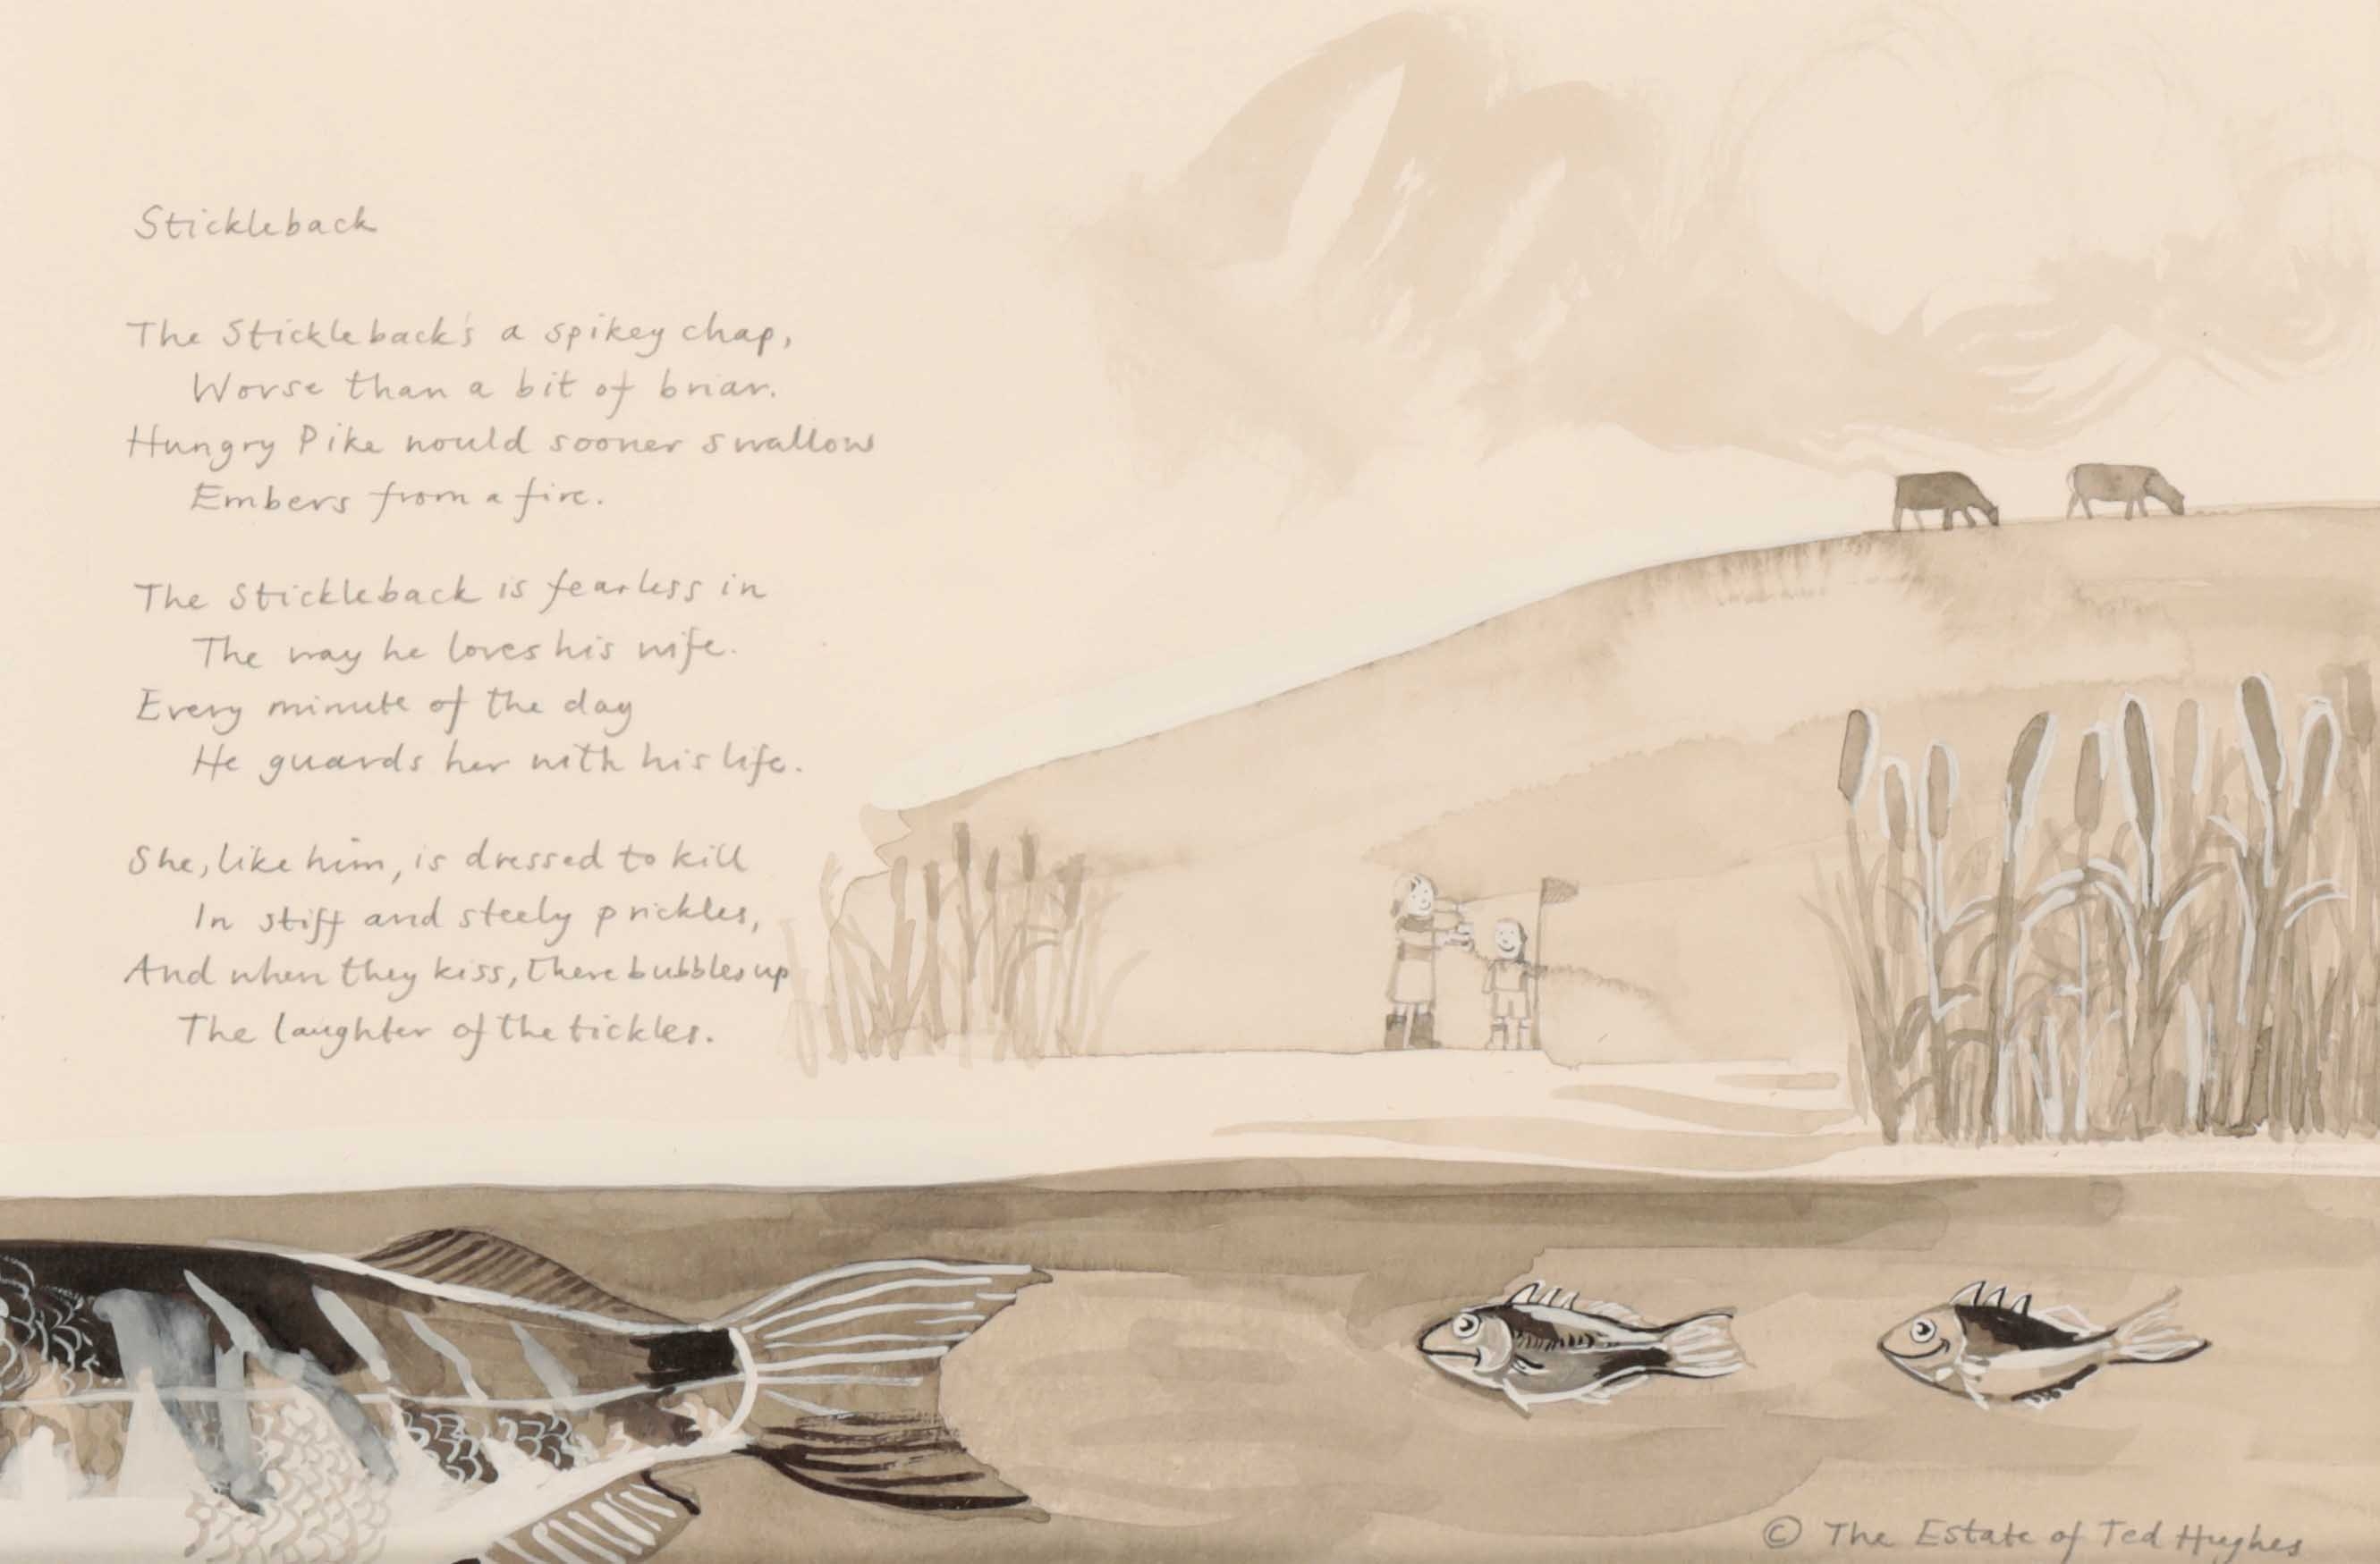 Stickleback
The Stickleback's a spikey chap,
Worse than a bit of briar.
Hungry Pike would sooner swallow
Embers from a fire.
The Stickleback is fearless in
The way he loves his wife.
Every minute of the day
He guards her with his life.
She, like him, is dressed to kill
In stiff and steely prickles,
And when they kiss, there bubbles up
The laughter of the tickles.
© The Estate of Ted Hughes